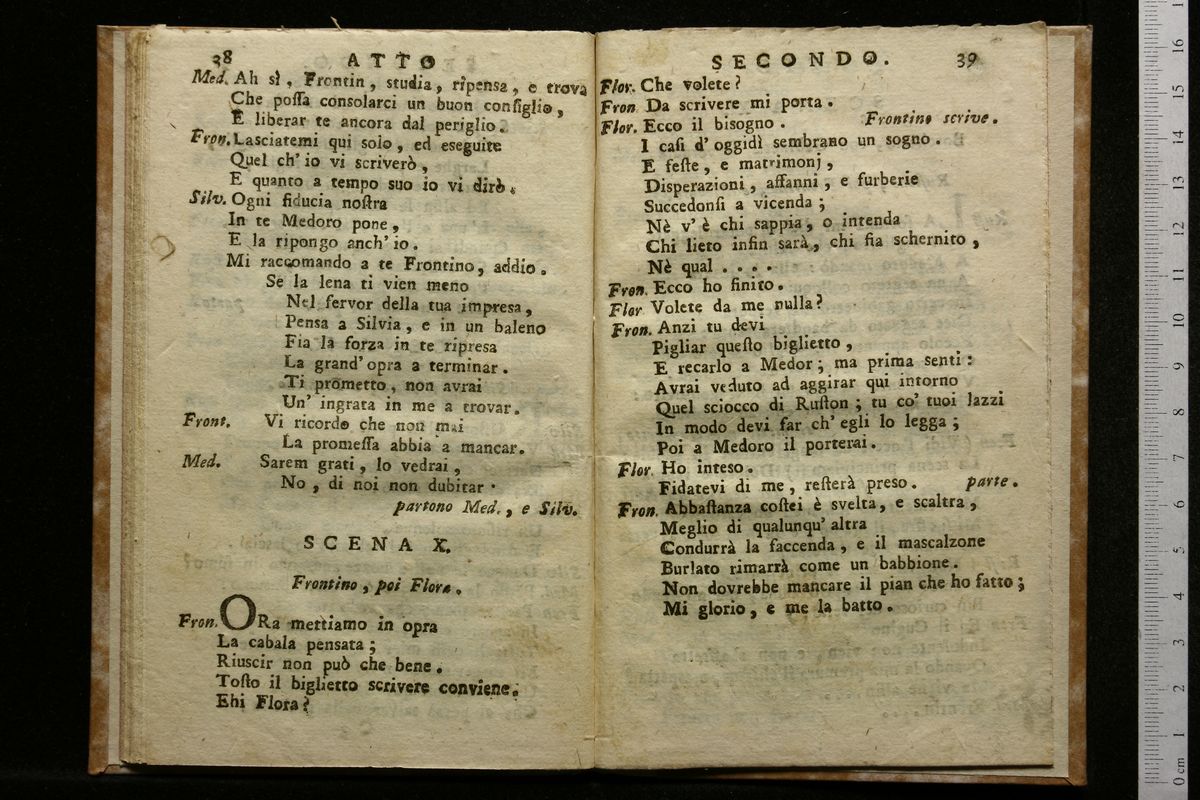 38 ATTO
Med. Ah sì, Frontin, studia, ripensa, e trova
Che possa consolarci un buon consiglio,
E liberar te ancora dal periglio.
Fron. Lasciatemi qui solo, ed eseguite
Quel ch' io vi scriverò,
E quanto a tempo suo io vi dirò.
Silv. Ogni fiducia nostra
In te Medoro pone,
E la ripongo anch' io.
Mi raccomando a te Frontino, addio.
Se la lena ti vien meno
Nel fervor della tua impresa,
Pensa a Silvia, e in un baleno
Fia la forza in te ripresa
La grand' opra a terminar.
Ti prometto, non avrai
Un' ingrata in me a trovar.
Front. Vi ricordo che non mai
La promessa abbia a mancar.
Med. Sarem grati, lo vedrai,
No, di noi non dubitar.
partono Med., e Silv.
SCENA X.
Frontino, poi Flora.
Fron. ORa mettiamo in opra
La cabala pensata;
Riuscir non può che bene.
Tosto il biglietto scrivere conviene.
Ehi Flora?
SECONDO. 39
Flor. Che volete?
Fron. Da scrivere mi porta.
Flor. Ecco il bisogno. Frontino scrive.
I casi d' oggidì sembrano un sogno.
E feste, e matrimonj,
Disperazioni, affanni, e furberie
Succedonsi a vicenda;
Nè v' è chi sappia, o intenda
Chi lieto infin sarà, chi fia schernito,
Nè qual . . . .
Fron. Ecco ho finito.
Flor Volete da me nulla?
Fron. Anzi tu devi
Pigliar questo biglietto,
E recarlo a Medor; ma prima senti:
Avrai veduto ad aggirar qui intorno
Quel sciocco di Ruston; tu co' tuoi lazzi
In modo devi far ch' egli lo legga;
Poi a Medoro il porterai.
Flor. Ho inteso.
Fidatevi di me, resterà preso. parte.
Fron. Abbastanza costei è svelta, e scaltra,
Meglio di qualunqu' altra
Condurrà la faccenda, e il mascalzone
Burlato rimarrà come un babbione.
Non dovrebbe mancare il pian che ho fatto;
Mi glorio, e me la batto.
0 cm 1 2 3 4 5 6 7 8 9 10 11 12 13 14 15 16